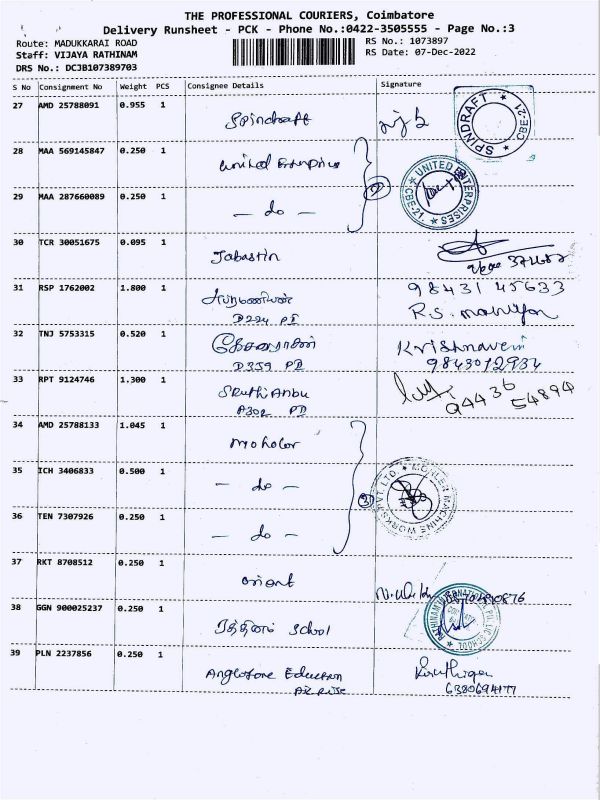 THE PROFESSIONAL COURIERS, Coimbatore
Delivery Runsheet - PCK - Phone No.:0422-3505555 - Page No.:3
Route: MADUKKARAI ROAD
RS No.: 1073897
Staff: VIJAYA RATHINAM
RS Date: 07-Dec-2022
DRS No.: DCJB107389703
S No Consignment No Weight PCS Consignee Details Signature
27 AMD 25788091 0.955 1
Spincraft
SPINDRAFT CBE-21
28 MAA 569145847 0.250 1
United Enterprises
UNITED ENTERPRISES CBE-21.
29 MAA 287660089 0.250 1
- do -
30 TCR 30051675 0.095 1
Jabastin
31 RSP 1762002 1.800 1
D224 PI
98431 45633
R.S.
32 TNJ 5753315 0.520 1
D359 PD
Krishnaveni
9843012934
33 RPT 9124746 1.300 1
Sruthi Anbu
A302 PD
94436 54894
34 AMD 25788133 1.045 1
Moholor
35 ICH 3406833 0.500 1
- do -
3
MOHLER MACHINE WORKS PVT. LTD.
36 TEN 7307926 0.250 1
- do -
37 RKT 8708512 0.250 1
Orient
38 GGN 900025237 0.250 1
ரத்தினம் School
RATHINAM INTERNATIONAL PUBLIC SCHOOL
39 PLN 2237856 0.250 1
Anglotone Education
6380694177